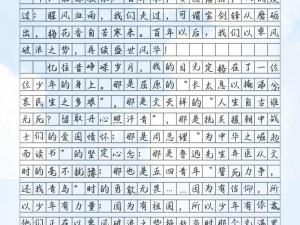 过：腥风血雨，我们走过，可谓宝剑锋从磨砺
出，梅花香自苦寒来。百年以后，我们以乘风
破浪之势，再续盛世风华！
忆往昔峥嵘岁月，我的目光定格在了一位
位少年的身上。那是屈原的“长太息以掩涕兮，
哀民生之多艰”，那是文天祥的“人生自古谁
无死？留取丹心照汗青”，那是抗美援朝中战
士们的爱国情怀：那是周总理“为中华之崛起
而读书”的坚定心念：那是鲁迅先生弃医从文
时的毫不犹豫：也是五四青年“誓死力争，还
我青岛”时的勇敢无畏……因为有信仰，所
以少年有力量：因为有祖国，所以少年有依靠